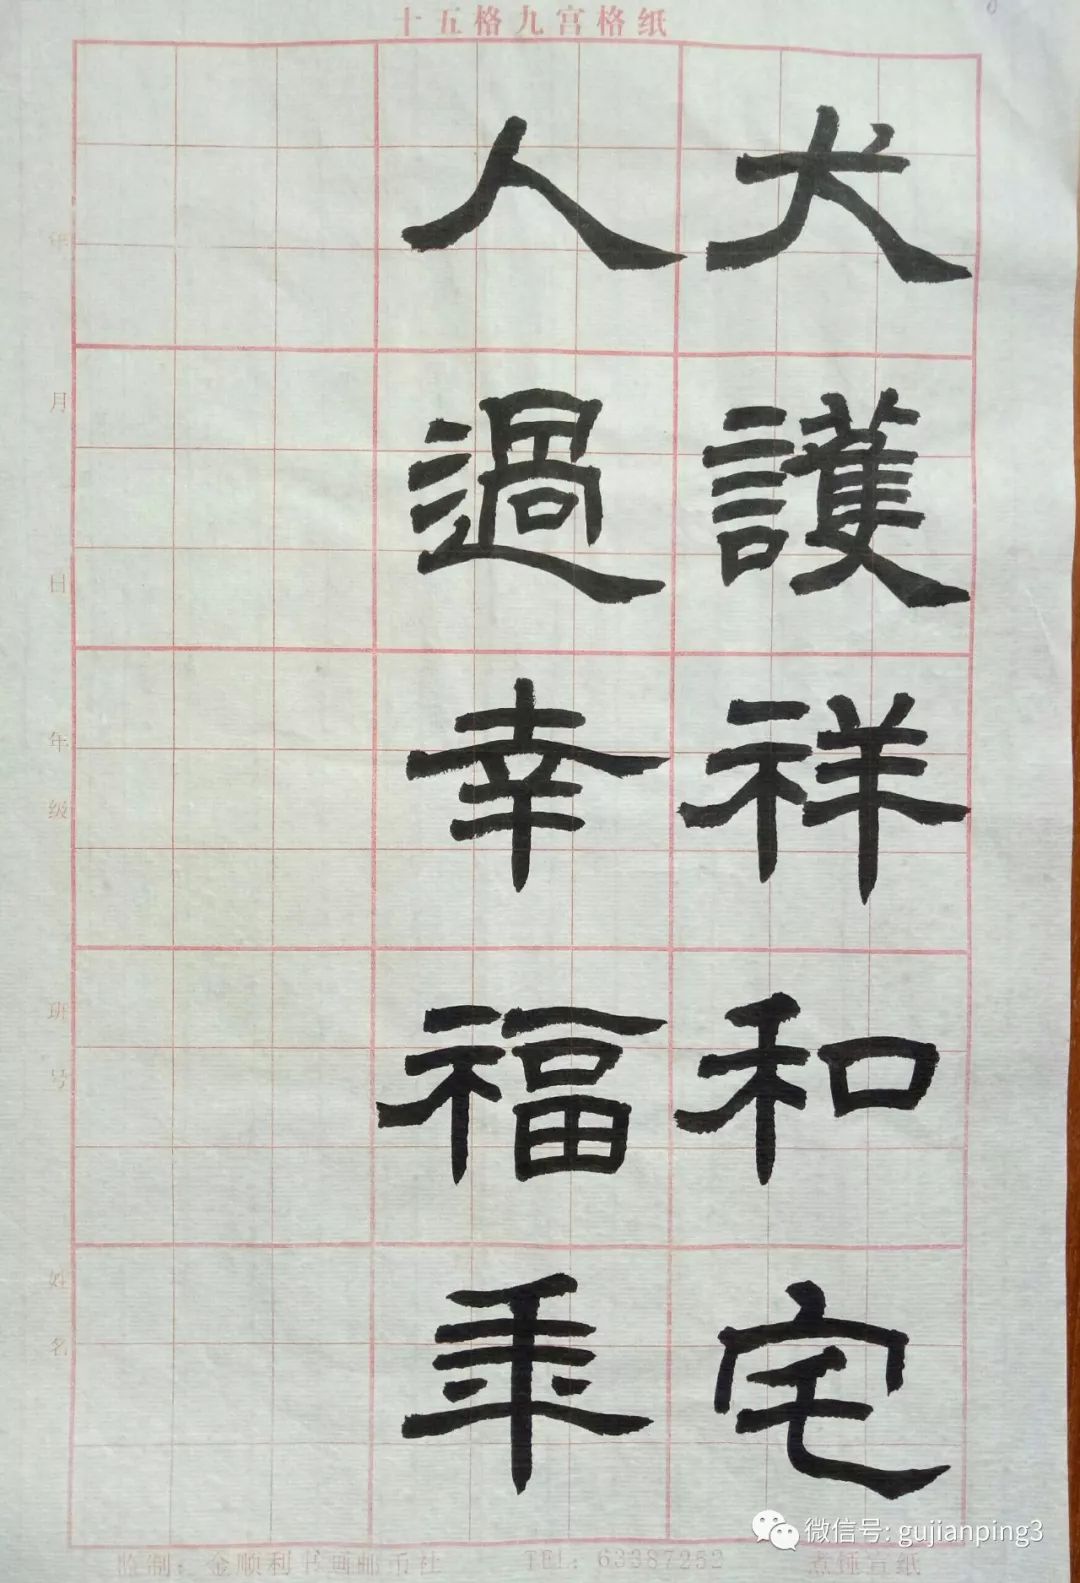 十五格九宫格纸
犬護祥和宅
人過幸福年
年
月
日
年级
班号
姓名
监制：金顺利书画邮币社 TEL：63387252 煮锤宣纸
微信号: gujianping3